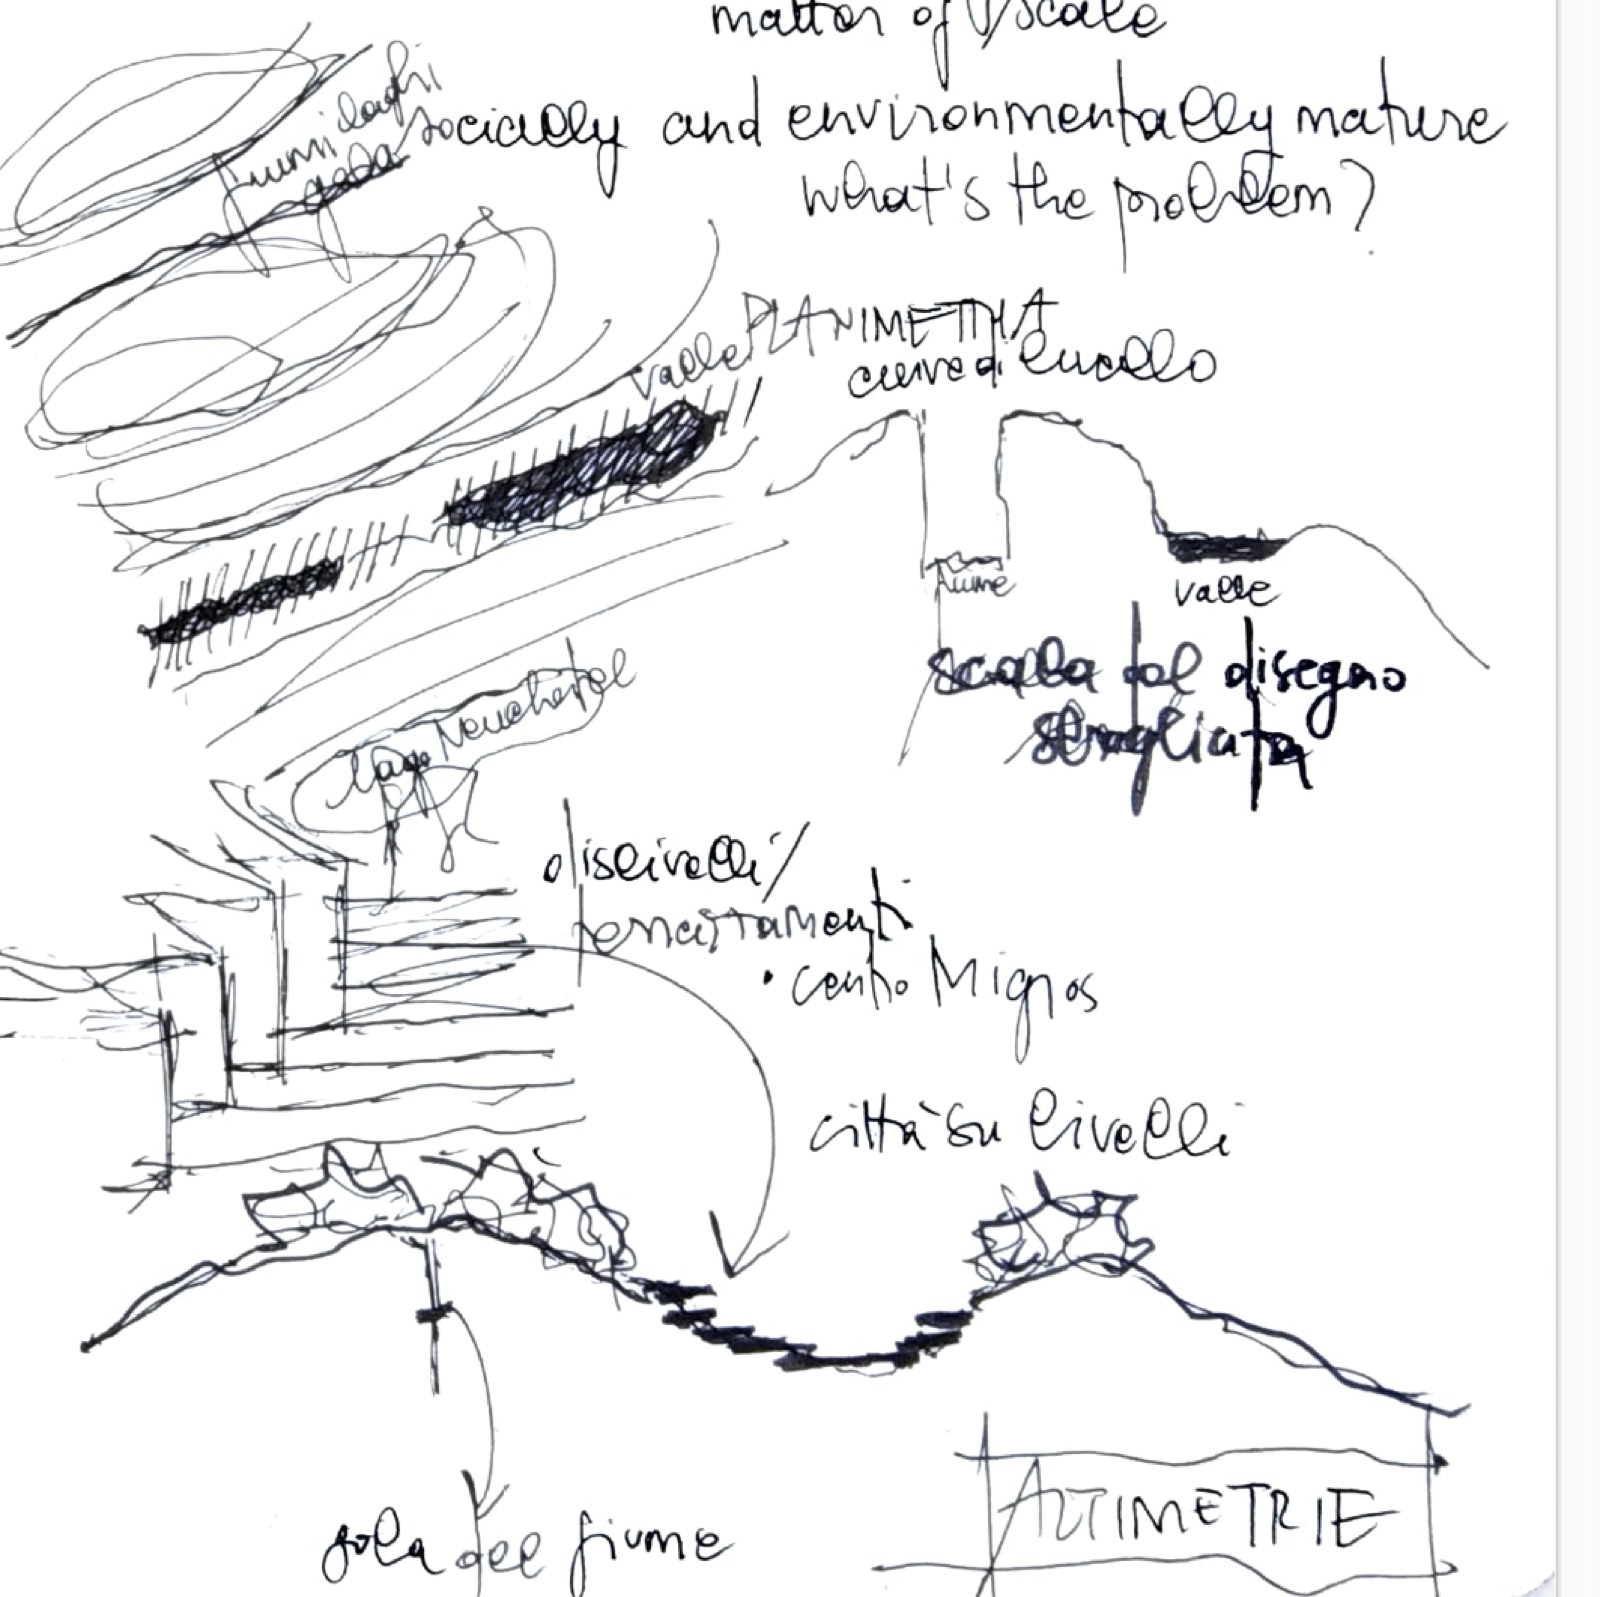 matter of scale
socially and environmentally mature
what's the problem?
fiumi laghi
gola
valle
PLANIMETRIA
curve di livello
fiume
valle
scala del disegno
sbagliata
lago Neuchatel
dislivelli/
terrazzamenti
• centro Migros
città su livelli
gola del fiume
ALTIMETRIE